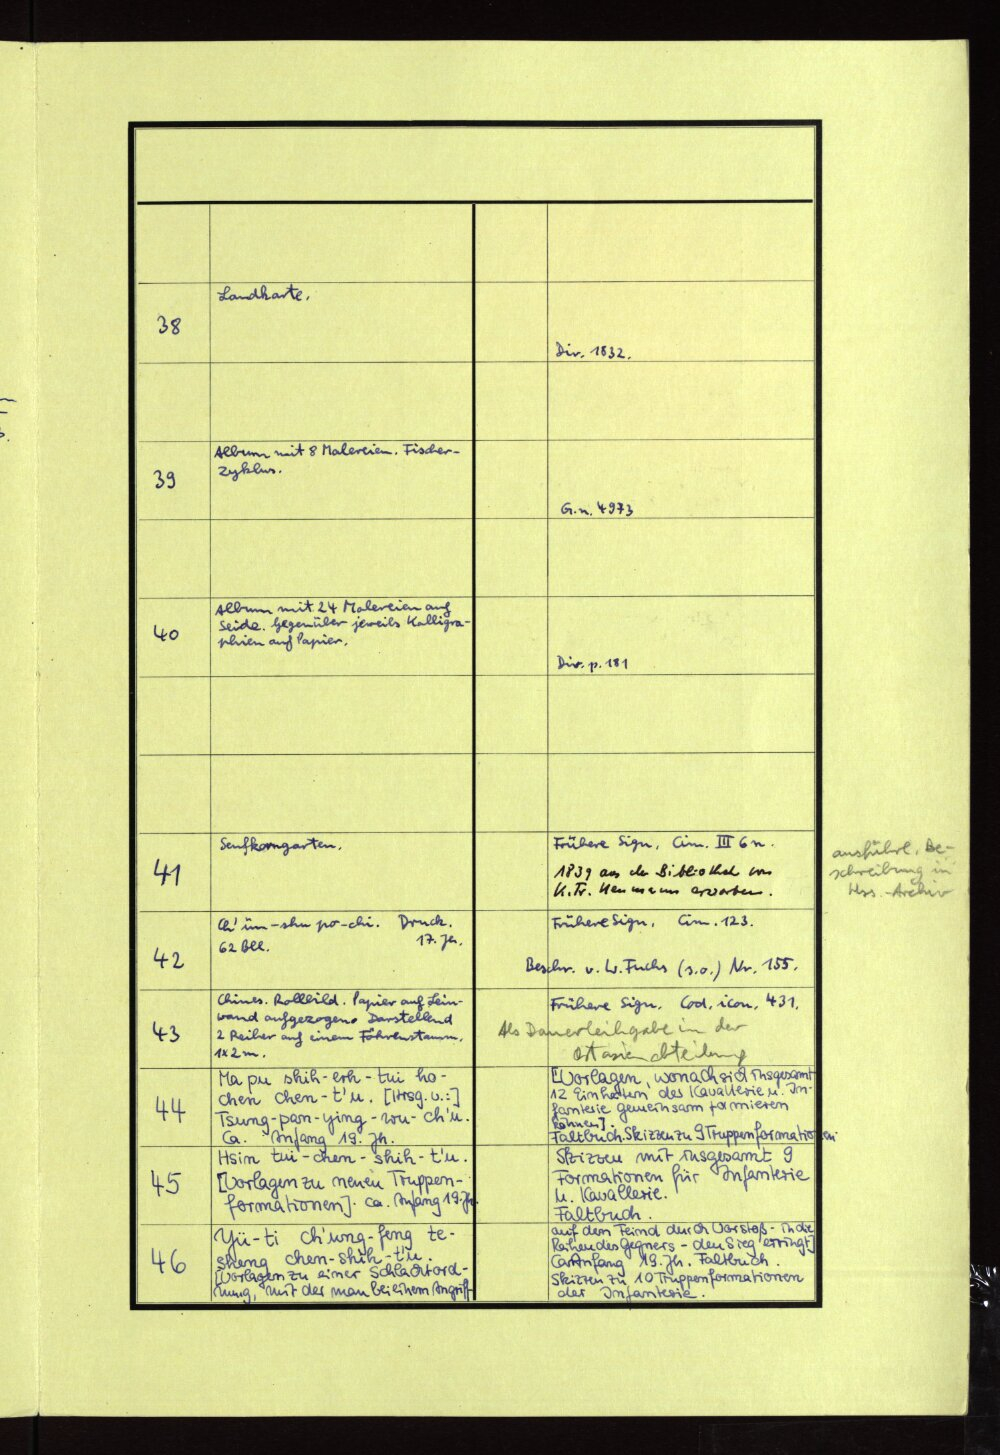 38
Landkarte.
Div. 1832.
39
Album mit 8 Malereien. Fischer-
zyklus.
G.n. 4973
40
Album mit 24 Malereien auf
Seide. Gegenüber jeweils Kalligra-
phien auf Papier.
Div. p. 181
41
Senfkorngarten.
Frühere Sign. Cim. III 6 n.
1839 aus der Bibliothek von
K. Fr. Neumann erworben.
ausführl. Be-
schreibung in
Hss.-Archiv
42
Ch'ün-shu po-chi. Druck.
62 Bll. 17. Jh.
Frühere Sign. Cim. 123.
Beschr. v. W. Fuchs (s.o.) Nr. 155.
43
Chines. Rollbild. Papier auf Lein-
wand aufgezogen. Darstellend
2 Reiher auf einem Föhrenstamm.
1x2m.
Frühere Sign. Cod. icon. 431.
Als Dauerleihgabe in der
Ostasienabteilung
44
Ma pu shih-erh-tui ho-
chen chen-t'u. [Hrsg. v.:]
Tsung-pan-ying-wu-ch'u.
Ca. Anfang 19. Jh.
[Vorlagen, wonach sich insgesamt
12 Einheiten des Kavallerie u. In-
fanterie gemeinsam formieren
können].
Faltbuch. Skizzen zu 9 Truppenformationen
45
Hsin tui-chen-shih-t'u.
[Vorlagen zu neuen Truppen-
formationen]. ca. Anfang 19. Jh.
Skizzen mit insgesamt 9
Formationen für Infanterie
u. Kavallerie.
Faltbuch.
46
Yü-ti ch'ung-feng te-
sheng chen-shih-t'u.
[Vorlagen zu einer Schlachtord-
nung, mit der man bei einem Angriff
auf den Feind durch Vorstoß - in die
Reihen des Gegners - den Sieg erringt]
Ca. Anfang 19. Jh. Faltbuch.
Skizzen zu 10 Truppenformationen
der Infanterie.